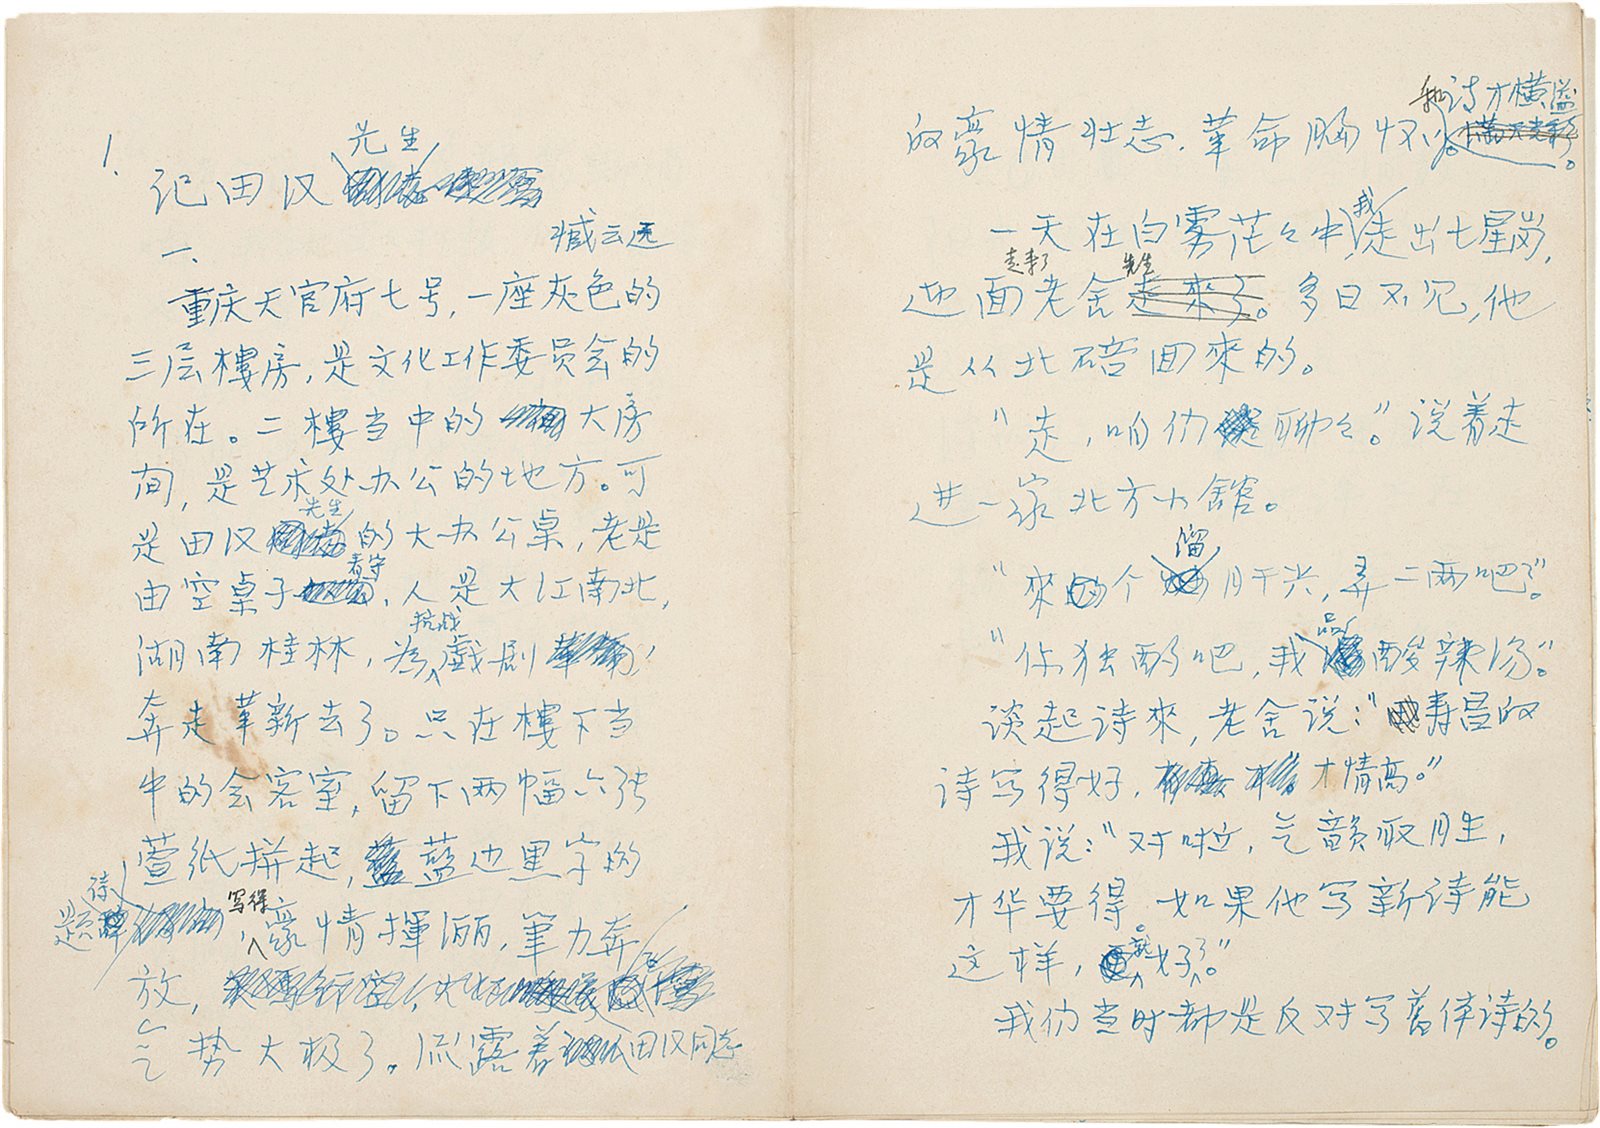 1.
先生
记田汉
臧云远
一、
重庆天官府七号，一座灰色的
三层樓房，是文化工作委员会的
所在。二樓当中的大房
间，是艺术处办公的地方。可
是田汉先生的大办公桌，老是
由空桌子看守，人是大江南北，
湖南桂林，为抗战戲剧
奔走革新去了。只在樓下当
中的会客室，留下两幅六张
萱纸拼起，藍边黑字的
题诗，写得豪情揮洒，筆力奔
放，
气势大极了。流露着田汉同志
的豪情壮志，革命胸怀和诗才横溢。
一天在白雾茫々中，我走出七星岗，
迎面走来了老舍先生。多日不见，他
是从北碚回來的。
“走，咱们聊々。”说着走
进一家北方小館。
“來个溜月干尖，弄二两吧？”
“你独酌吧，我品酸辣汤。”
谈起诗來，老舍说：“寿昌的
诗写得好，才情高。”
我说：“对啦，气韻取胜，
才华要得。如果他写新诗能
这样，就好了。”
我们当时都是反对写舊体诗的。